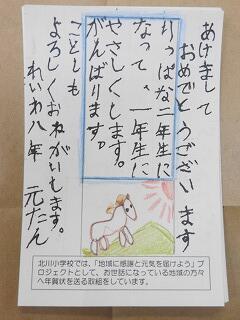 あけまして
おめでとうございます
りっぱな二年生に
なって、一年生に
やさしくします。
がんばります。
ことしも
よろしくおねがいします。
れいわ八年 元たん
北川小学校では、「地域に感謝と元気を届けよう」プ
ロジェクトとして、お世話になっている地域の方々
へ年賀状を送る取組をしています。